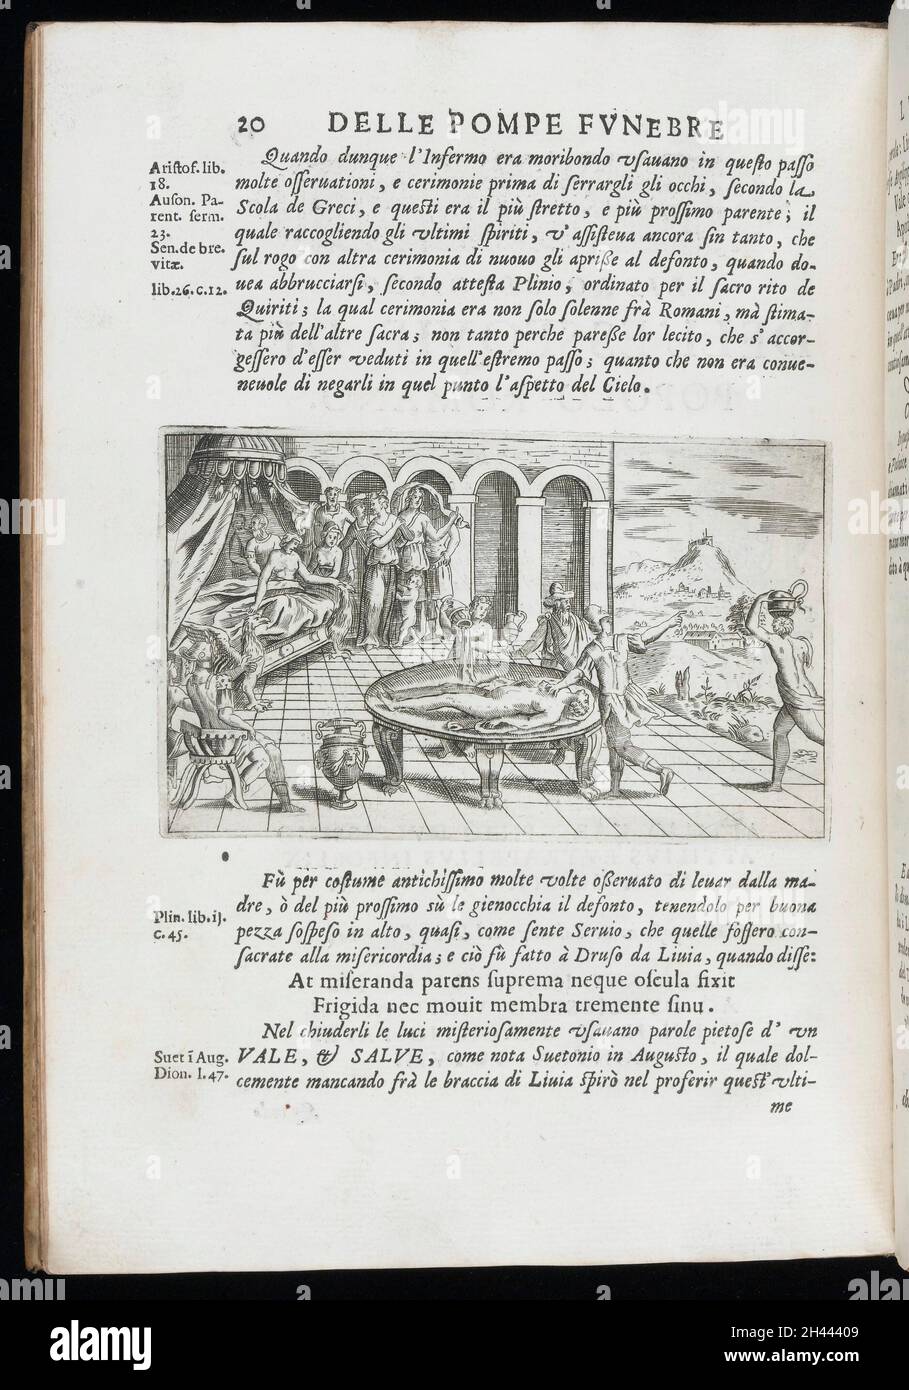 20 DELLE POMPE FVNEBRE
Quando dunque l'Infermo era moribondo vsauano in questo passo
molte osseruationi, e cerimonie prima di serrargli gli occhi, secondo la
Scola de Greci, e questi era il più stretto, e più prossimo parente; il
quale raccogliendo gli vltimi spiriti, v'assisteua ancora sin tanto, che
sul rogo con altra cerimonia di nuouo gli aprisse al defonto, quando do-
uea abbrucciarsi, secondo attesta Plinio, ordinato per il sacro rito de
Quiriti; la qual cerimonia era non solo solenne frà Romani, mà stima-
ta più dell'altre sacra; non tanto perche paresse lor lecito, che s'accor-
gessero d'esser veduti in quell'estremo passo; quanto che non era conue-
neuole di negarli in quel punto l'aspetto del Cielo.
Aristof. lib.
18.
Auson. Pa-
rent. serm.
23.
Sen. de bre.
vitæ.
lib. 26. c. 12.
Fù per costume antichissimo molte volte osseruato di leuar dalla ma-
dre, ò del più prossimo sù le gienocchia il defonto, tenendolo per buona
pezza sospeso in alto, quasi, come sente Seruio, che quelle fossero con-
sacrate alla misericordia; e ciò fù fatto à Druso da Liuia, quando disse:
At miseranda parens suprema neque oscula fixit
Frigida nec mouit membra tremente sinu.
Nel chiuderli le luci misteriosamente vsauano parole pietose d'vn
VALE, & SALVE, come nota Suetonio in Augusto, il quale dol-
cemente mancando frà le braccia di Liuia spirò nel proferir quest'vlti-
me
Plin. lib. ij.
c. 45.
Suet ī Aug.
Dion. l. 47.
alamy
Image ID: 2H44409
www.alamy.com